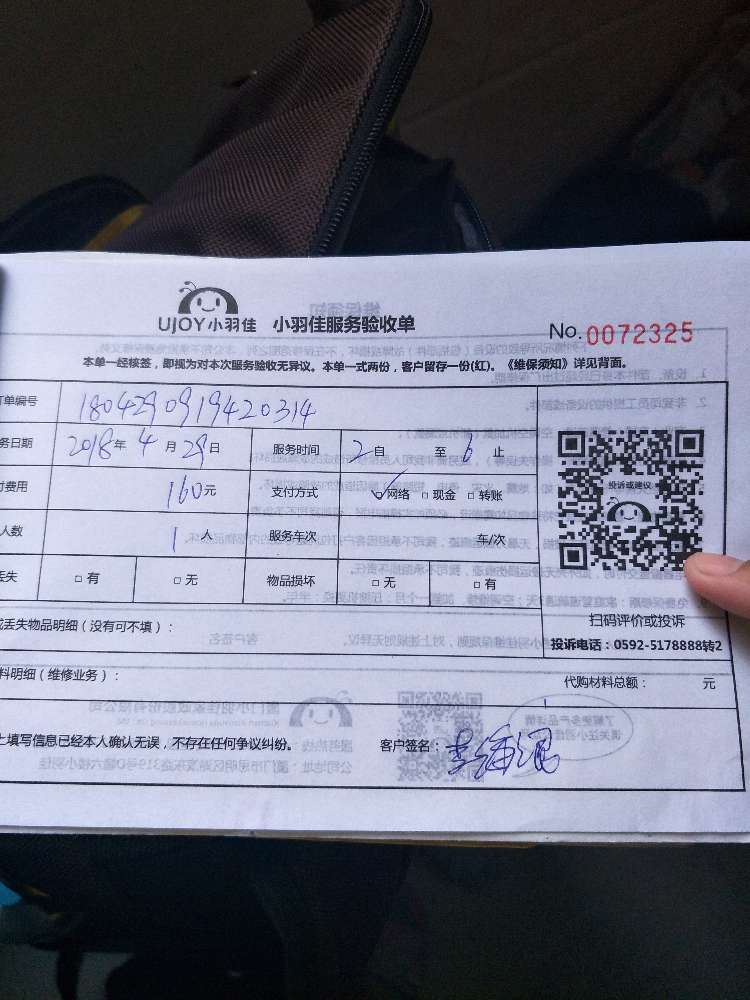 UJOY小羽佳 小羽佳服务验收单
No.0072325
本单一经核签，即视为对本次服务验收无异议。本单一式两份，客户留存一份(红)。《维保须知》详见背面。
单编号 1804290919420314
务日期 2018年 4月 29日 服务时间 2自 至 6止
付费用 160元 支付方式 ✓网络 □现金 □转账
人数 1人 服务车次 车/次
丢失 □有 □无 物品损坏 □无 □有
投诉或建议
扫码评价或投诉
投诉电话：0592-5178888转2
丢失物品明细（没有可不填）：
料明细（维修业务）：
代购材料总额： 元
上填写信息已经本人确认无误，不存在任何争议纠纷。 客户签名：